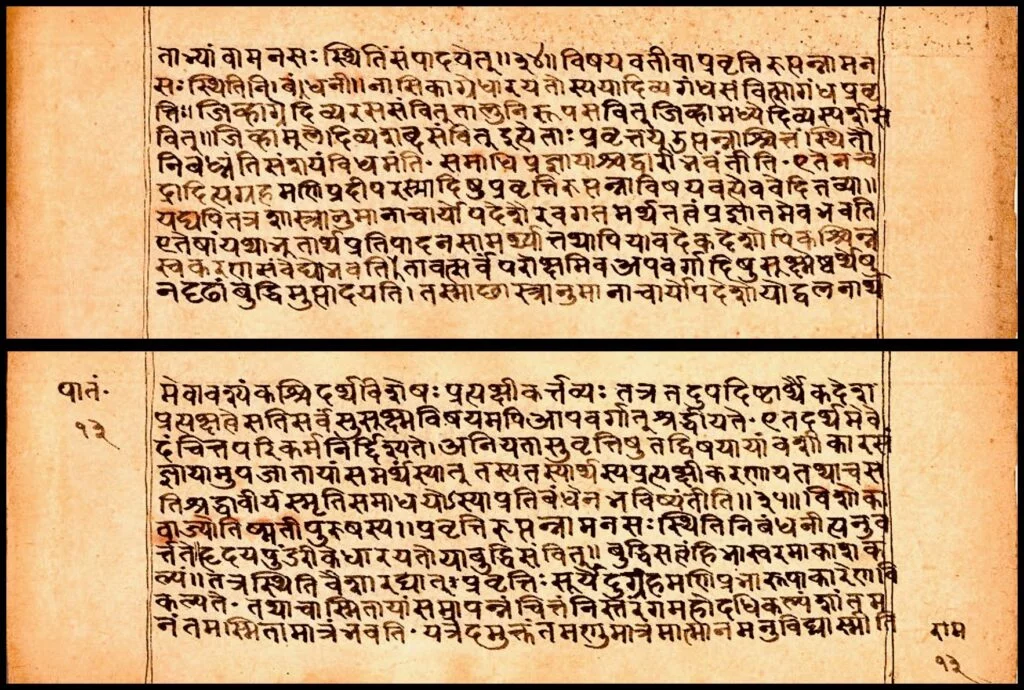 ताभ्यां वा मनसः स्थितिं संपादयेत्॥३४॥विषयवती वा प्रवृत्तिरुत्पन्ना मन
सः स्थितिनिबंधनी॥नासिकाग्रे धारयतो स्य या दिव्यगंधसंवित्सा गंधप्रवृ
त्तिः॥जिव्हाग्रे दिव्यरससंवित् तालुनि रूपसंवित् जिव्हामध्ये दिव्यस्पर्शसं
वित्॥जिव्हामुले दिव्यशब्दसंवित् इत्येताः प्रवृत्तय उत्पन्नाश्चित्तं स्थितौ
निबध्नंति संशयं विधमंति· समाधिप्रज्ञायाश्च द्वारीभवंतीति· एतेन चं
द्रादित्यग्रहमणिप्रदीपरस्मादिषु प्रवृत्तिरुत्पन्ना विषयवत्येव वेदितव्या॥
यद्यपि तत्र शास्त्रानुमानाचार्योपदेशैरवगतमर्थतत्वं प्रज्ञातमेव भवति
एतेषां यथाभुतार्थप्रतिपादनसामर्थ्यात् तथापि यावदेकदेशोपि कश्चिन्न
स्वकरणसंवेद्यो भवति। तावत्सर्वं परोक्षमिव अपवर्गादिषु सुक्ष्मेष्वर्थेषु
न दृढां बुद्धिमुत्पादयति। तस्माछास्त्रानुमानाचार्योपदेशोपोद्वलनार्थ
पातं·
१३
मेवावश्यं कश्चिदर्थविशेषः प्रत्यक्षीकर्त्तव्यः तत्र तदुपदिष्टार्थैकदेश
प्रत्यक्षत्वे सति सर्वं सुसुक्ष्मविषयमपि आपवर्गात् श्रद्धीयते· एतदर्थमेवे
दं चित्तपरिकर्म निर्द्दिश्यते। अनियतासु वृत्तिषु तद्विषयायां वशीकारसं
ज्ञायामुपजातायां समर्थं स्यात् तस्य तस्यार्थस्य प्रत्यक्षीकरणाय तथा च स
ति श्रद्धावीर्यस्मृतिसमाधयोऽस्याप्रतिबंधेन भविष्यंतीति॥३५॥विशोका
वा ज्योतिष्मती पुरुषस्य॥प्रवृत्तिरुत्पन्ना मनसः स्थितिनिबंधनीत्यनुव
र्त्तते हृदयपुंडरीके धारयतो या बुद्धिसंवित्॥ बुद्धिसत्वं हि भास्वरमाकाशक
ल्पं॥तत्र स्थितिवैशारद्यात् प्रवृत्तिः सूर्येंदुग्रहमणिप्रभारूपाकारेण वि
कल्पते· तथा चास्मितायां समापन्नं चित्तं निस्तरंगमहोदधिकल्पं शांतम
नंतमस्मितामात्रं भवति· यत्रेदमुक्तं तमणुमात्रमात्मानमनुविद्यास्मीति
राम
१३